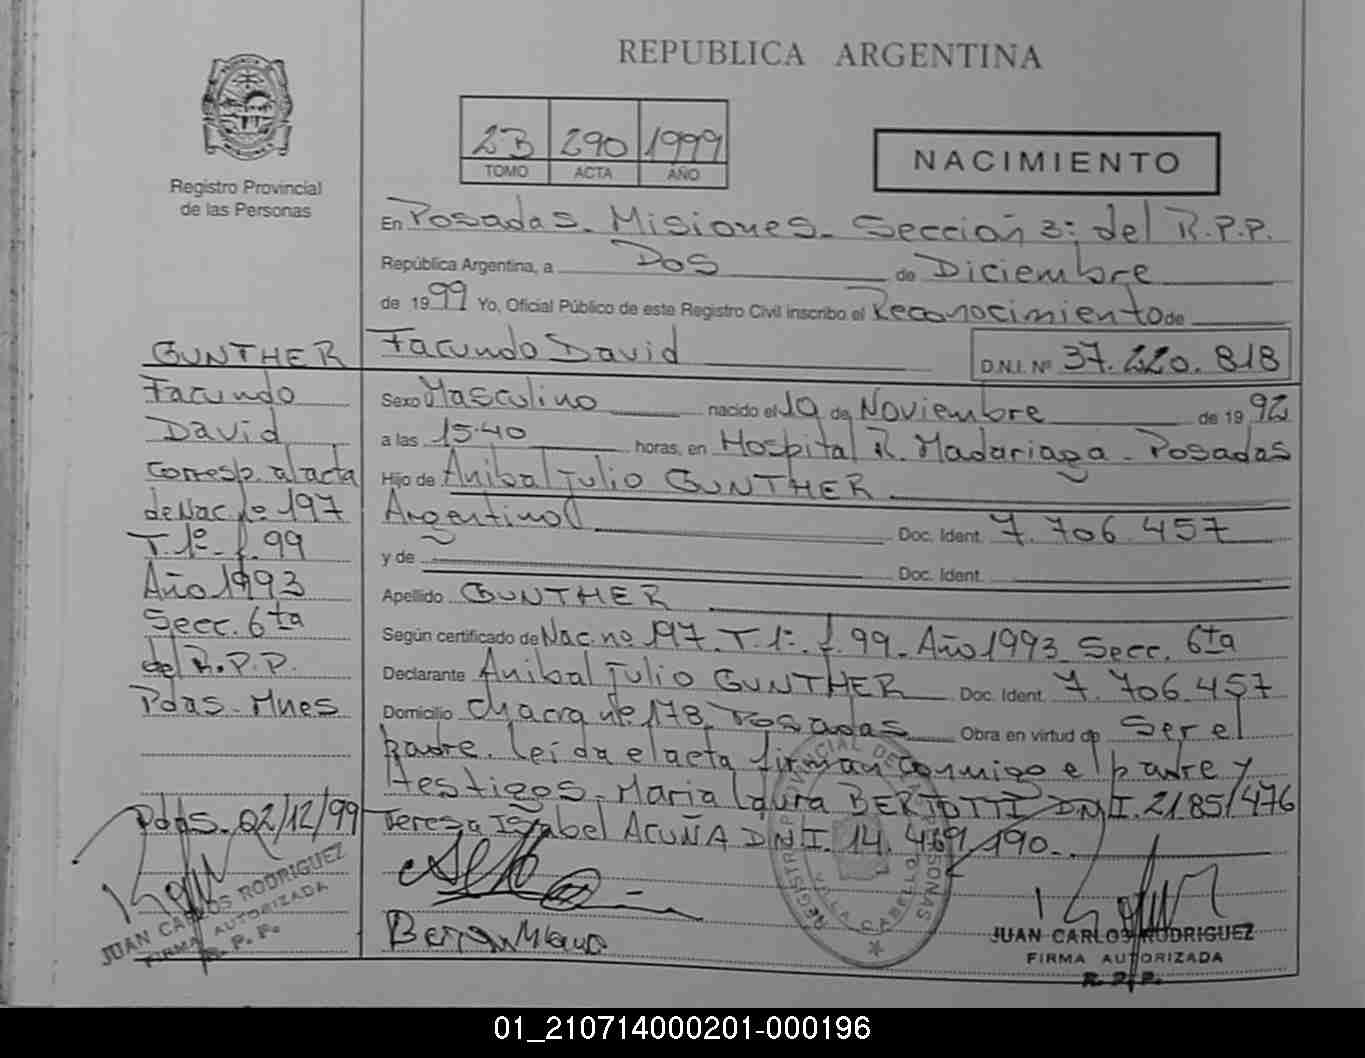 REPUBLICA ARGENTINA
2B 290 1999
TOMO ACTA AÑO
NACIMIENTO
Registro Provincial
de las Personas
En Posadas - Misiones - Sección 3ª del R.P.P.
República Argentina, a Dos de Diciembre
de 1999 Yo, Oficial Público de este Registro Civil inscribo el Reconocimiento de
Facundo David D.N.I. Nº 37.220.818
Sexo Masculino nacido el 19 de Noviembre de 1992
a las 15.40 horas, en Hospital R. Madariaga - Posadas
Hijo de Anibal Julio GUNTHER
Argentino Doc. Ident. 7.706.457
y de Doc. Ident.
Apellido GUNTHER
Según certificado de Nac. nº 197 - T. 1º - f. 99 - Año 1993 - Secc. 6ta
Declarante Anibal Julio GUNTHER Doc. Ident. 7.706.457
Domicilio Chacra nº 178, Posadas Obra en virtud de Ser el
padre. Leída el acta firman conmigo el padre y
testigos. Maria Laura BERTOTTI DNI. 21851476
Teresa Isabel ACUÑA D.N.I. 14.469.190.-
GUNTHER
Facundo
David
Corresp. al acta
de Nac. nº 197
T. 1º - f. 99
Año 1993
Secc. 6ta
del R.P.P.
Pdas - Mnes
Pdas. 02/12/99
JUAN CARLOS RODRIGUEZ
FIRMA AUTORIZADA
R. P. P.
JUAN CARLOS RODRIGUEZ
FIRMA AUTORIZADA
R. P. P.
01_210714000201-000196